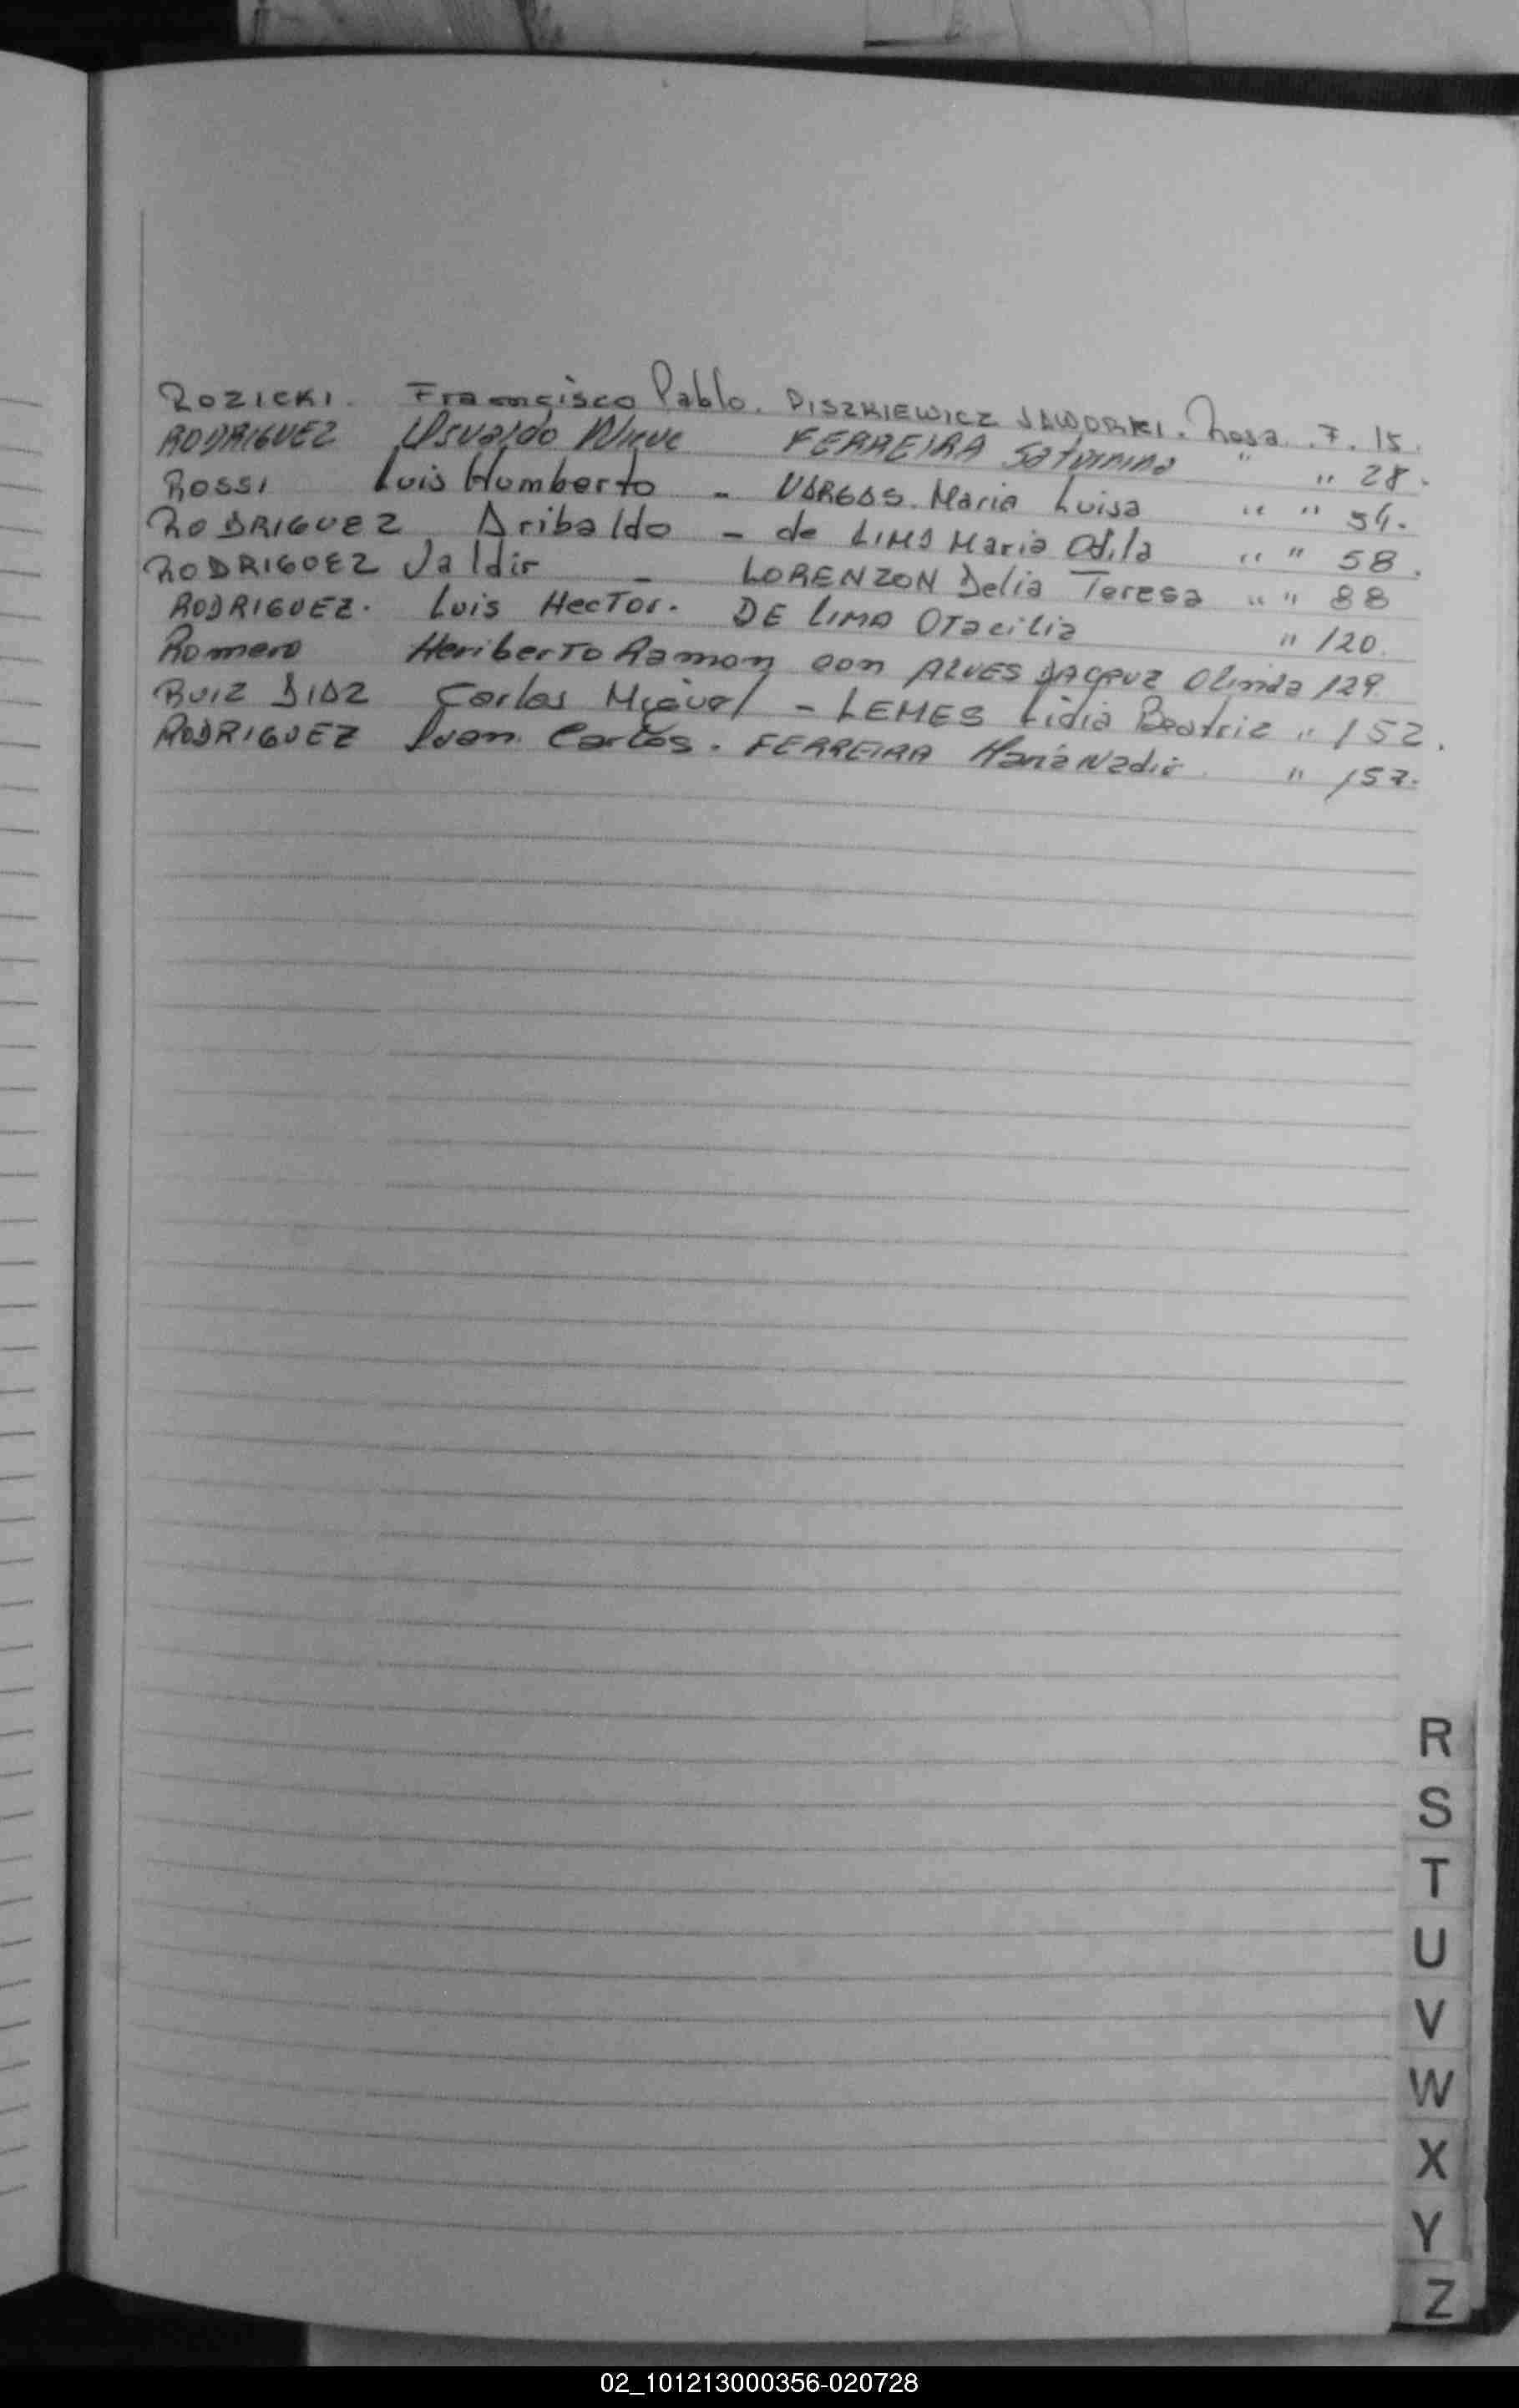 ROZICKI. Francisco Pablo. PISZKIEWICZ JAWORKI. Rosa. F. 15.
RODRIGUEZ Osvaldo FERREIRA Saturnina " " 28.
ROSSI Luis Humberto - VARGAS. Maria Luisa " " 54.
RODRIGUEZ Aribaldo - de LIMA Maria Odila " " 58.
RODRIGUEZ Valdir - LORENZON Delia Teresa " " 88
RODRIGUEZ. Luis Hector. DE LIMA Otacilia " 120.
Romero Heriberto Ramon con ALVES DACRUZ Olinda 129
RUIZ DIAZ Carlos Miguel - LEMES Lidia Beatriz " 152.
RODRIGUEZ Juan Carlos. FERREIRA Maria Nadir " 157.
R
S
T
U
V
W
X
Y
Z
02_101213000356-020728